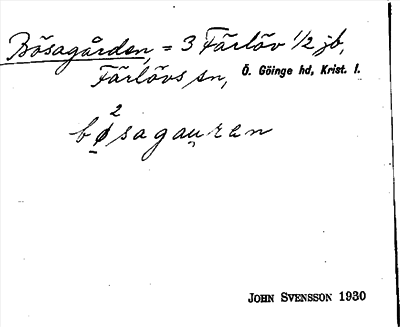 Bösagården, = 3 Färlöv 1/2 jb,
Färlövs sn, Ö. Göinge hd, Krist. l.
2
bøsagau̯ren
JOHN SVENSSON 1930